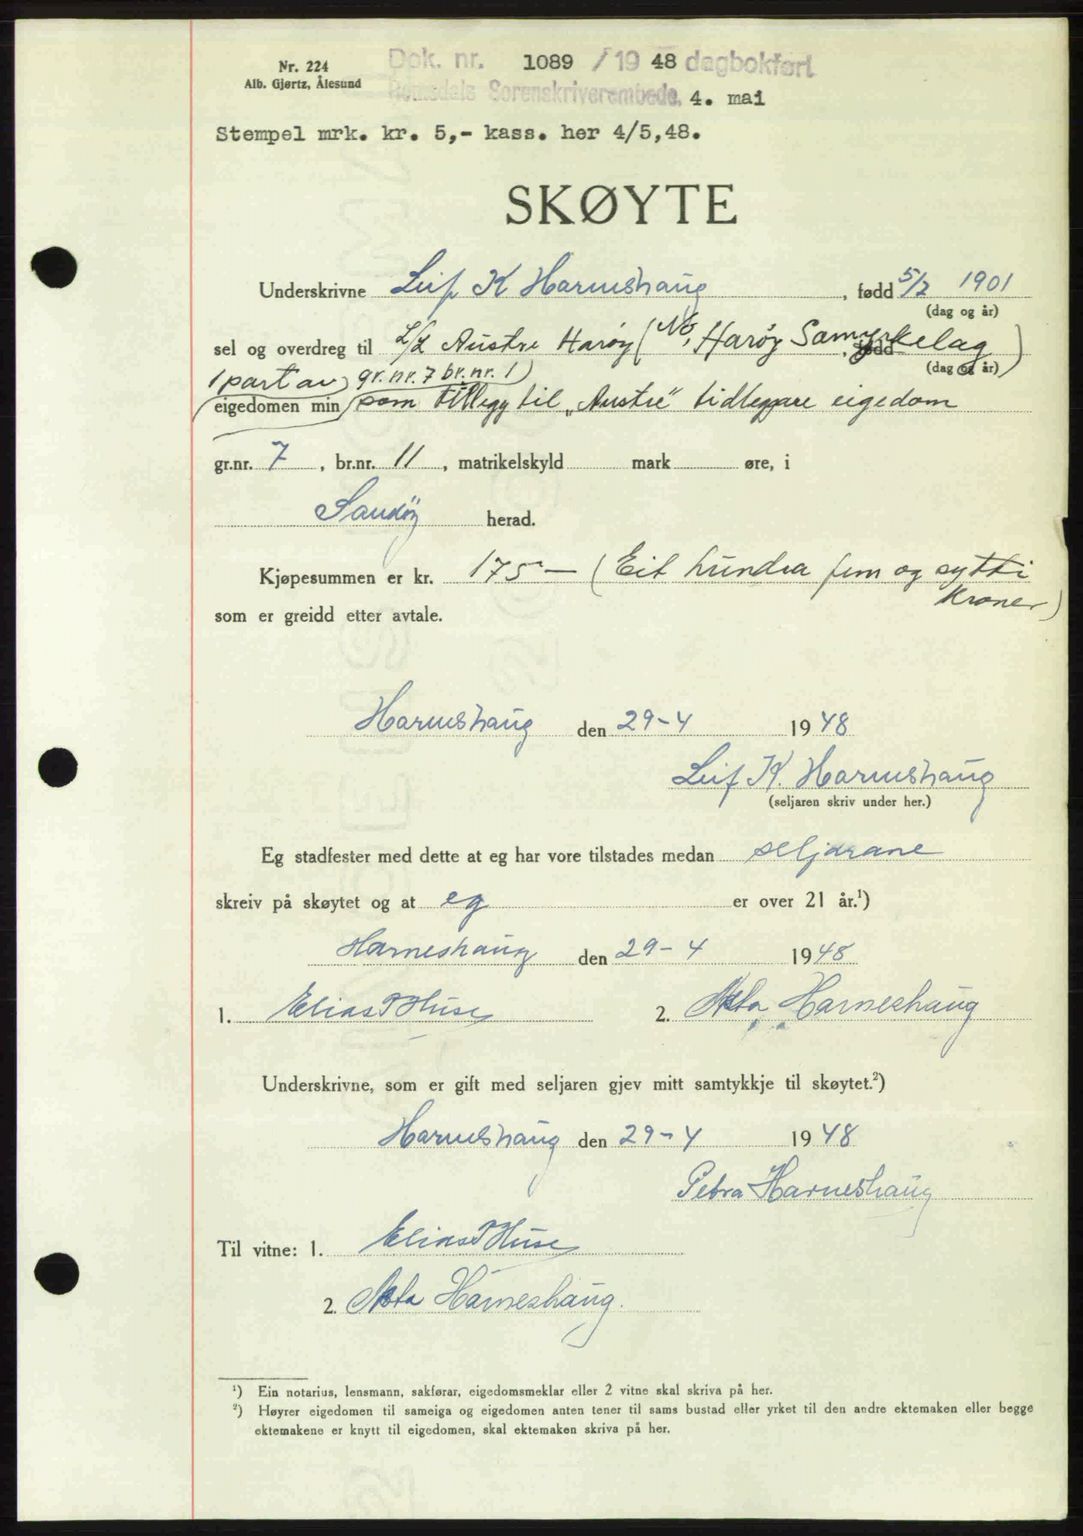 Nr. 224
Alb. Gjørtz, Ålesund
Dok. nr. 1089 / 19 48 dagbokført
Romsdals Sorenskriverembede, 4. mai
Stempel mrk. kr. 5,- kass. her 4/5,48.
SKØYTE
Underskrivne Leif K Harneshaug, fødd 5/2 1901
(dag og år)
sel og overdreg til L/L Austre Harøy ( Harøy Samyrkelag )
, fødd
(dag og år)
1 part av gr. nr. 7 br. nr. 1)
eigedomen min som tillegg til „Austre" tidlegare eigedom
gr.nr. 7, br.nr. 11, matrikelskyld mark øre, i
Sandøy herad.
Kjøpesummen er kr. 175 — (Eit hundra fem og sytti
Kroner)
som er greidd etter avtale.
Harneshaug den 29-4 1948
Leif K. Harneshaug
(seljaren skriv under her.)
Eg stadfester med dette at eg har vore tilstades medan seljarane
skreiv på skøytet og at eg er over 21 år.¹)
Harneshaug den 29-4 1948
1. Elias Huse 2. Harneshaug
Underskrivne, som er gift med seljaren gjev mitt samtykkje til skøytet.²)
Harneshaug den 29-4 1948
Petra Harneshaug
Til vitne: 1. Elias Huse
2. Harneshaug.
¹) Ein notarius, lensmann, sakførar, eigedomsmeklar eller 2 vitne skal skriva på her.
²) Høyrer eigedomen til sameiga og eigedomen anten tener til sams bustad eller yrket til den andre ektemaken eller begge
ektemakene er knytt til eigedomen, skal ektemaken skriva på her.